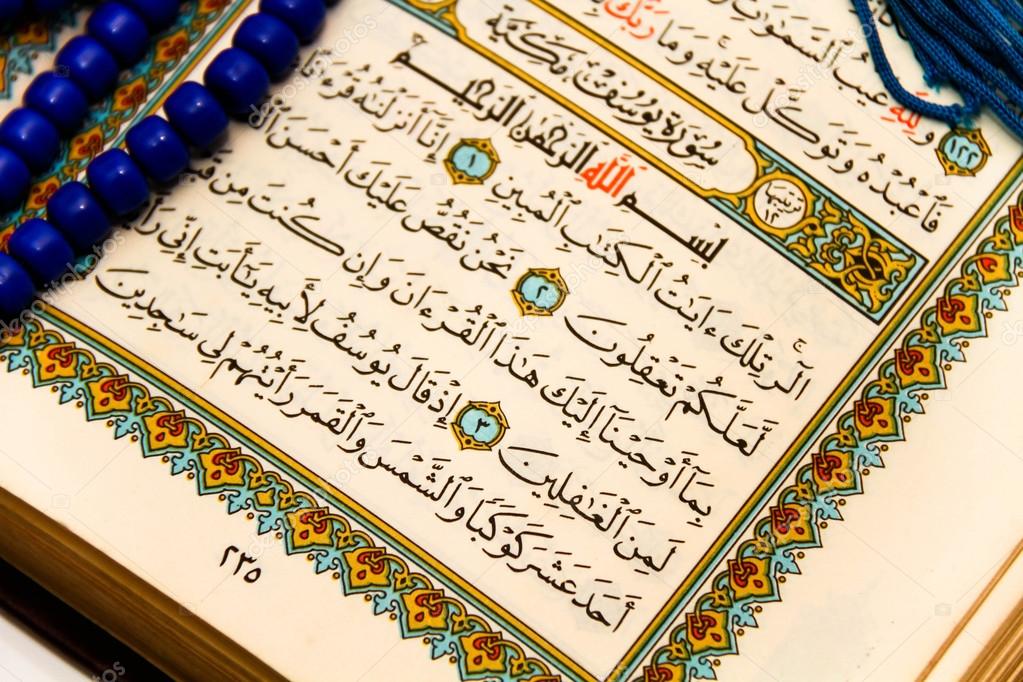 وَلِلَّهِ غَيْبُ ٱلسَّمَٰوَٰتِ
فَٱعْبُدْهُ وَتَوَكَّلْ عَلَيْهِ وَمَا رَبُّكَ
١٢٢
سُورَةُ يُوسُفَ مَكِّيَّة
١٢
بِسْمِ ٱللَّهِ ٱلرَّحْمَٰنِ ٱلرَّحِيمِ
الٓر تِلْكَ ءَايَٰتُ ٱلْكِتَٰبِ ٱلْمُبِينِ ١ إِنَّآ أَنزَلْنَٰهُ قُرْءَٰنًا
لَّعَلَّكُمْ تَعْقِلُونَ ٢ نَحْنُ نَقُصُّ عَلَيْكَ أَحْسَنَ
بِمَآ أَوْحَيْنَآ إِلَيْكَ هَٰذَا ٱلْقُرْءَانَ وَإِن كُنتَ مِن
لَمِنَ ٱلْغَٰفِلِينَ ٣ إِذْ قَالَ يُوسُفُ لِأَبِيهِ يَٰٓأَبَتِ إِنِّى
أَحَدَ عَشَرَ كَوْكَبًا وَٱلشَّمْسَ وَٱلْقَمَرَ رَأَيْتُهُمْ لِى سَٰجِدِينَ
٢٣٥
depositphotos